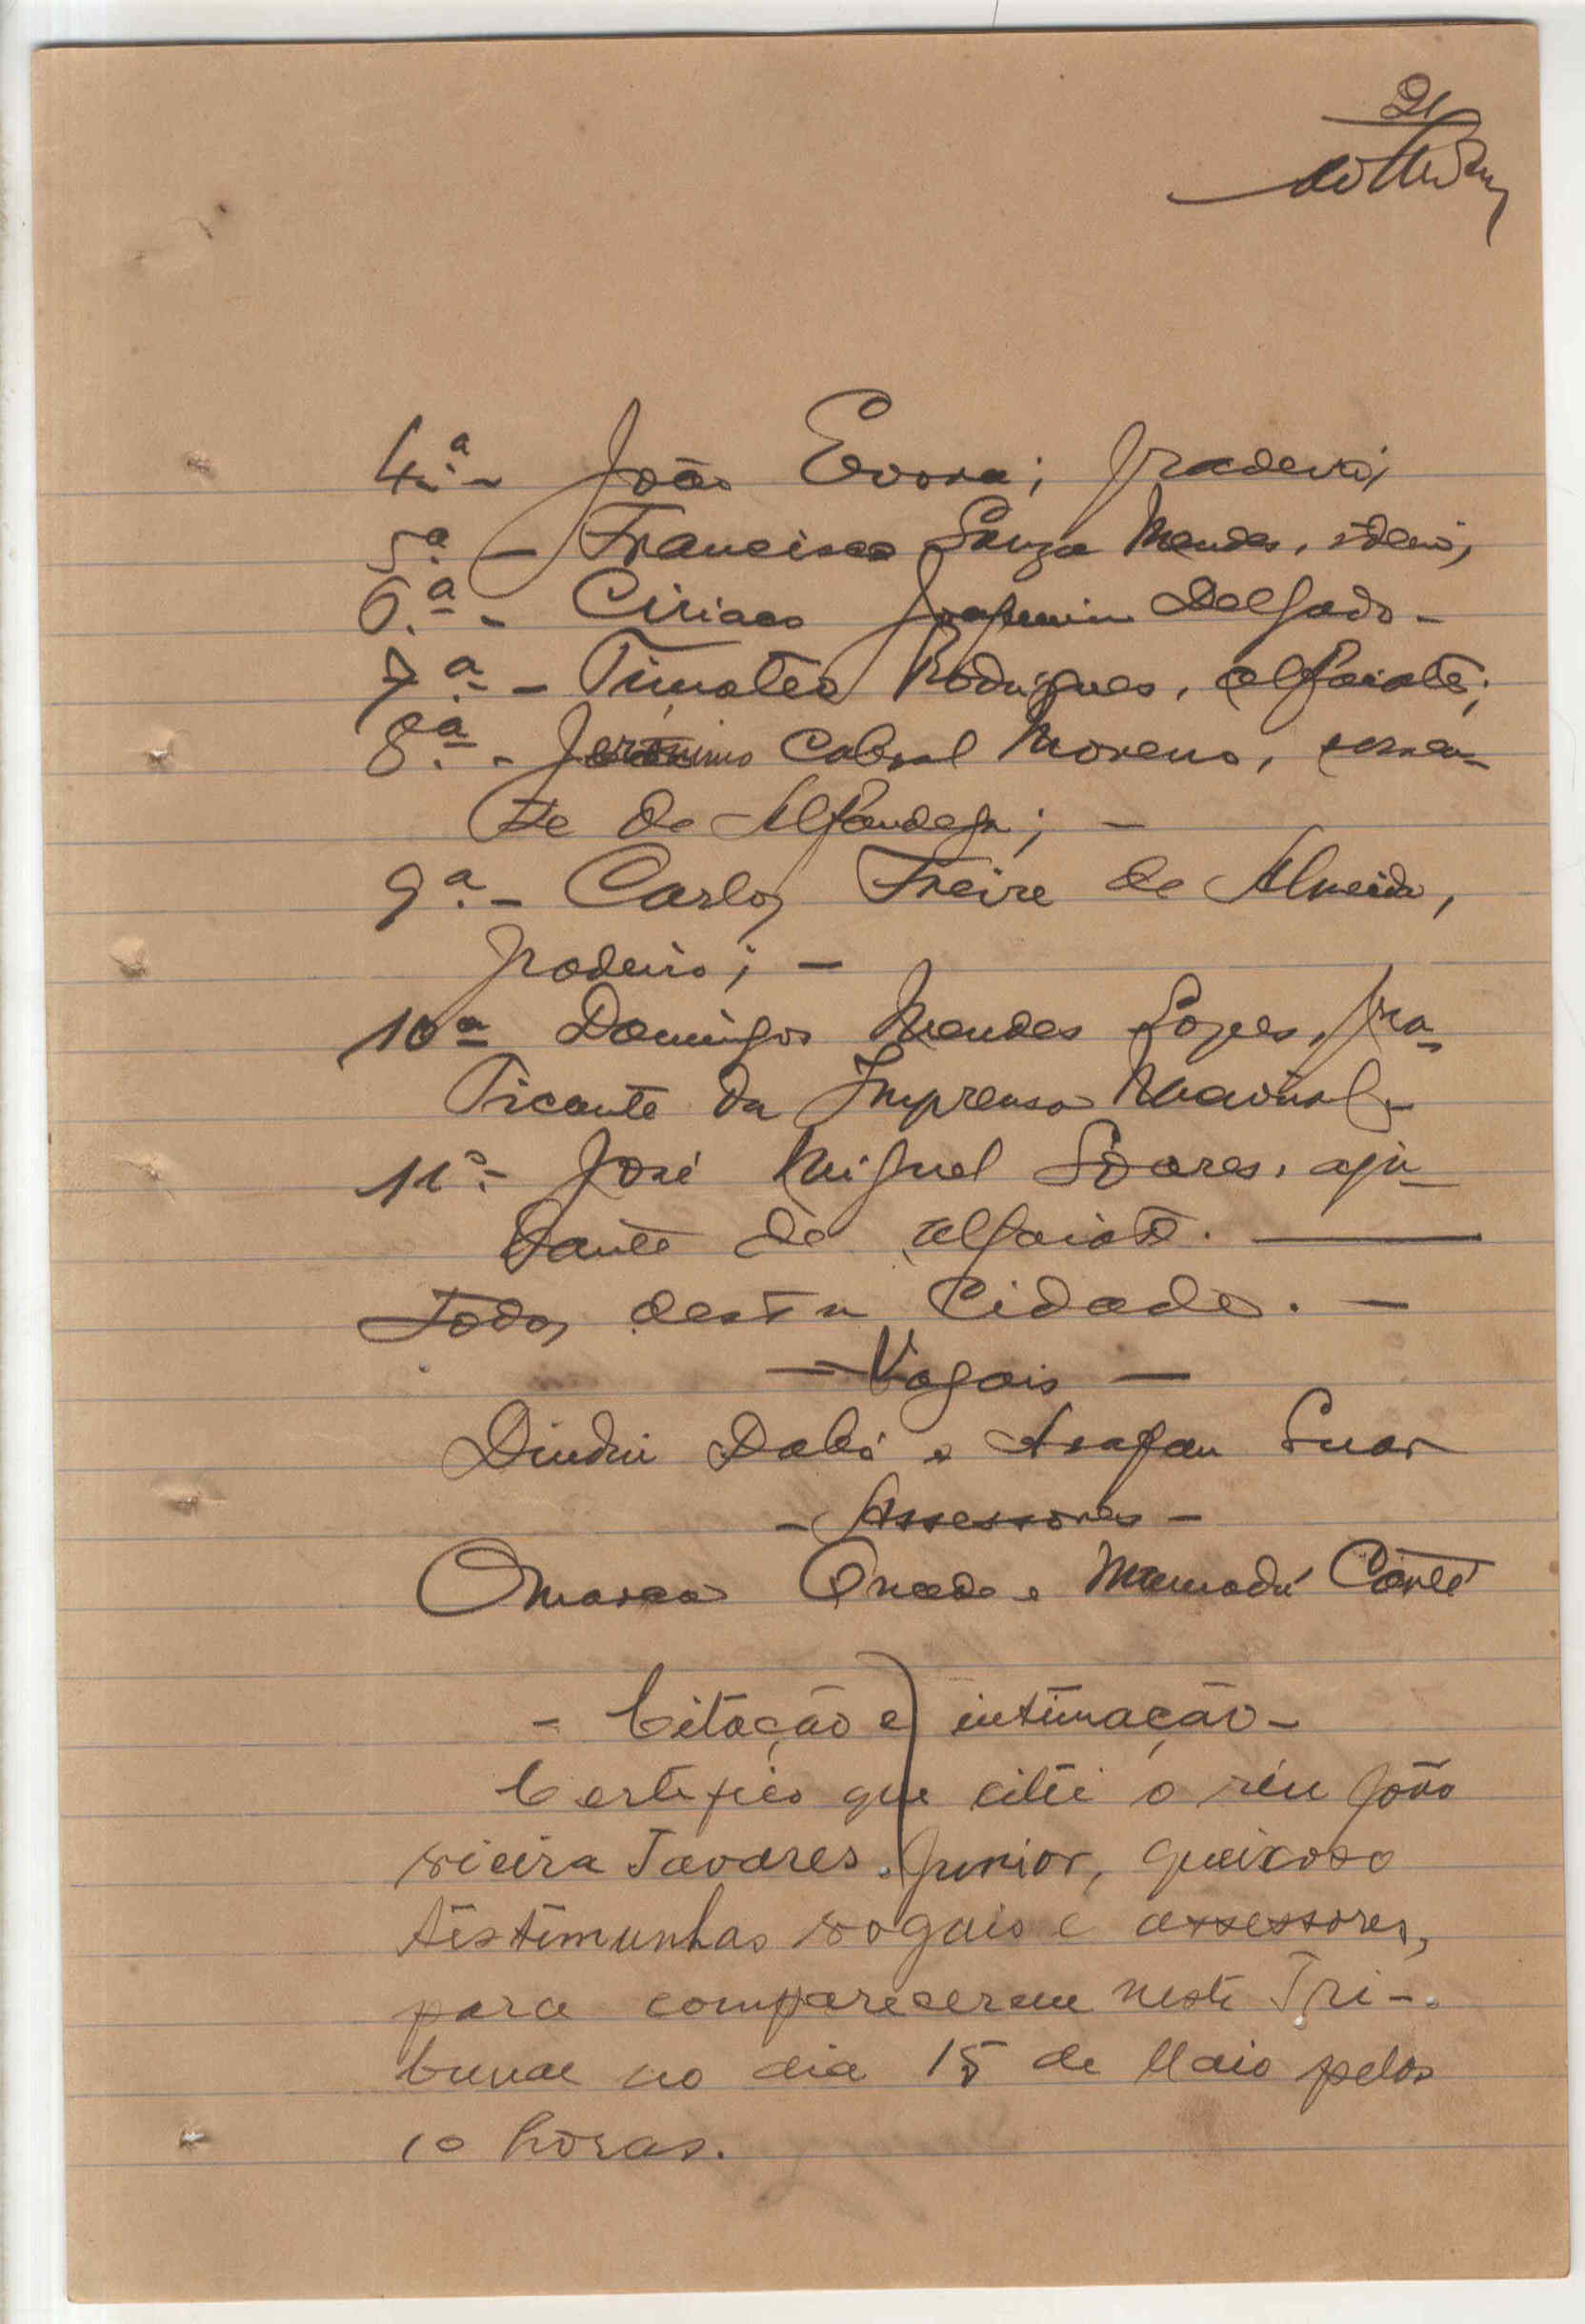 21
4.ª - João Evora; padeiro;
5.ª - Francisco Souza Mendes, idem;
6.ª - Ciriaco Joaquim Delgado -
7.ª - Timoteo Rodrigues, alfaiate;
8.ª - Jerónimo Cabral Moreno, serven-
te da Alfandega; -
9.ª - Carlos Freire de Almeida,
padeiro; -
10ª Domingos Mendes Lopes, pra-
ticante da Imprensa Nacional -
11ª - José Miguel Soares, aju-
dante de alfaiate.
Todos desta Cidade. -
- Vogais -
Dindin Dabó e Arafan Suar
- Assessores -
Mamadú
- Citação e intimação -
Certifico que citei o réu João
vieira Tavares Junior, queixoso
testimunhas vogais e assessores,
para comparecerem neste Tri-
bunal no dia 15 de Maio pelas
10 horas.